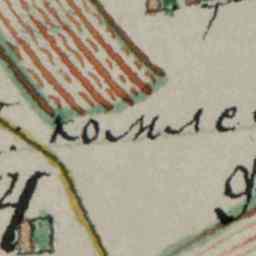 комле
Ч
9